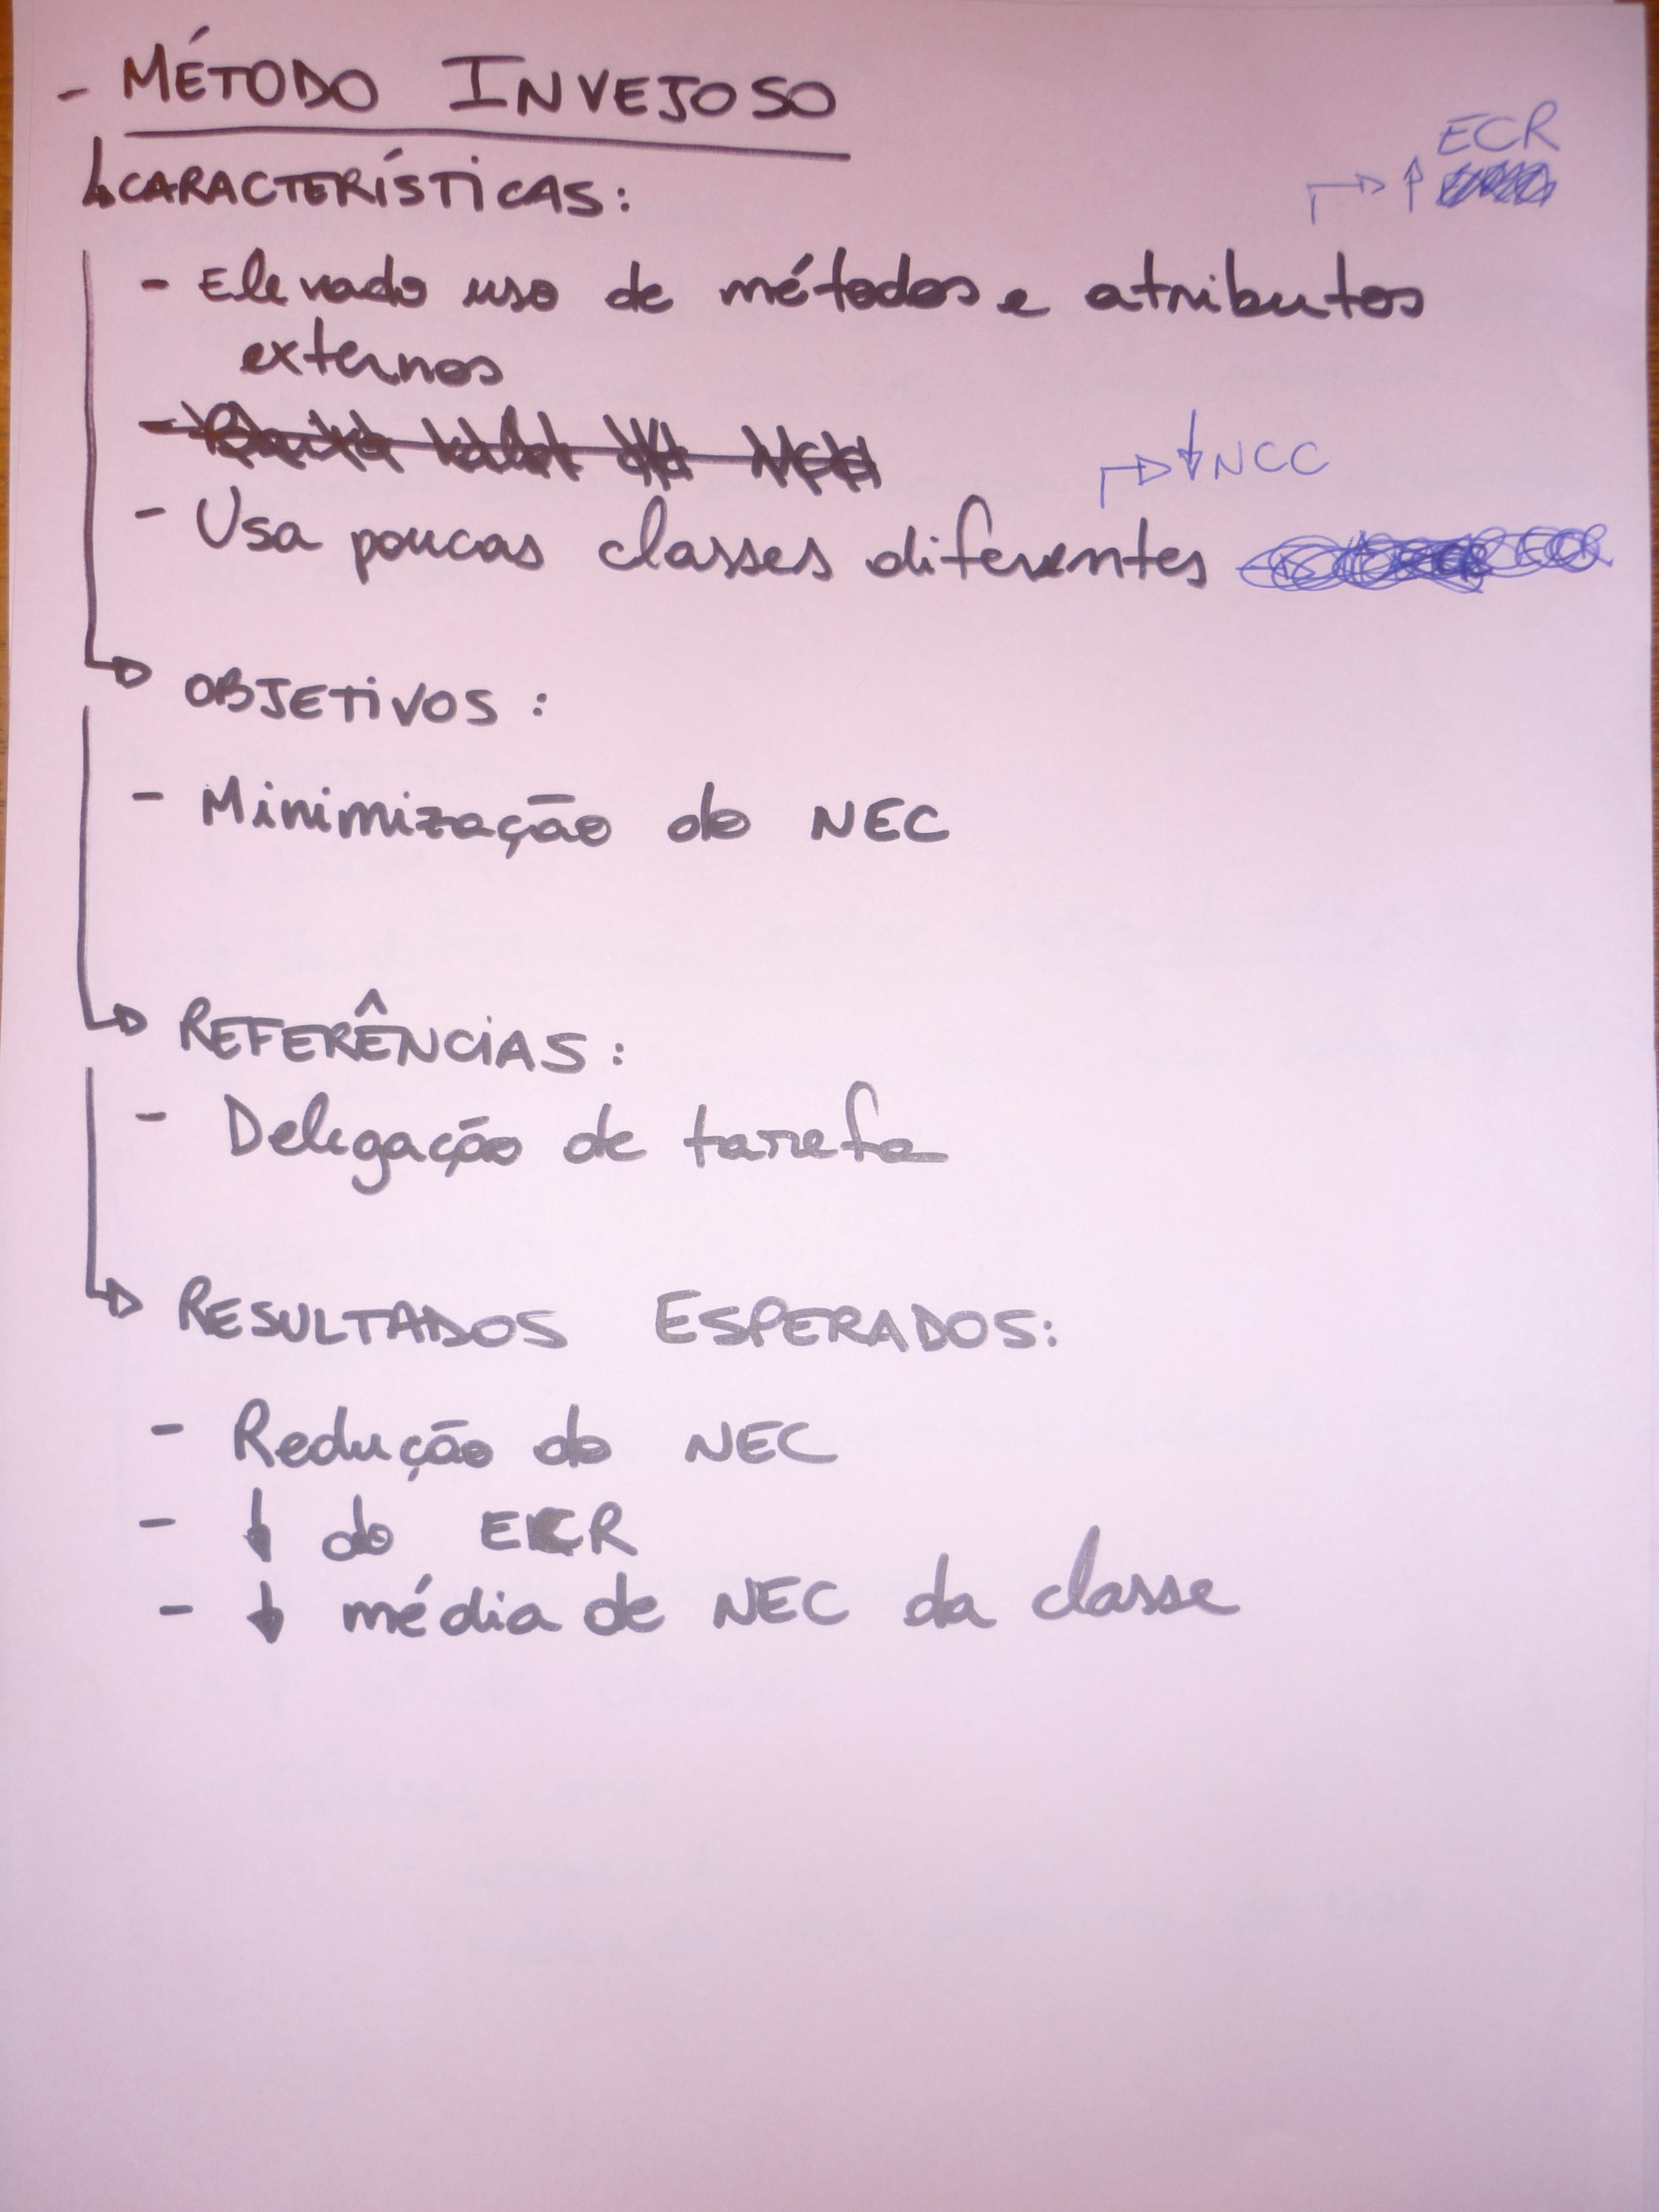 - MÉTODO INVEJOSO
ECR
↳ CARACTERÍSTICAS:
↑
- Elevado uso de métodos e atributos
externos
↓ NCC
- Usa poucas classes diferentes
→ OBJETIVOS:
- Minimização do NEC
→ REFERÊNCIAS:
- Delegação de tarefa
→ RESULTADOS ESPERADOS:
- Redução do NEC
- ↓ do ECR
- ↓ média de NEC da classe